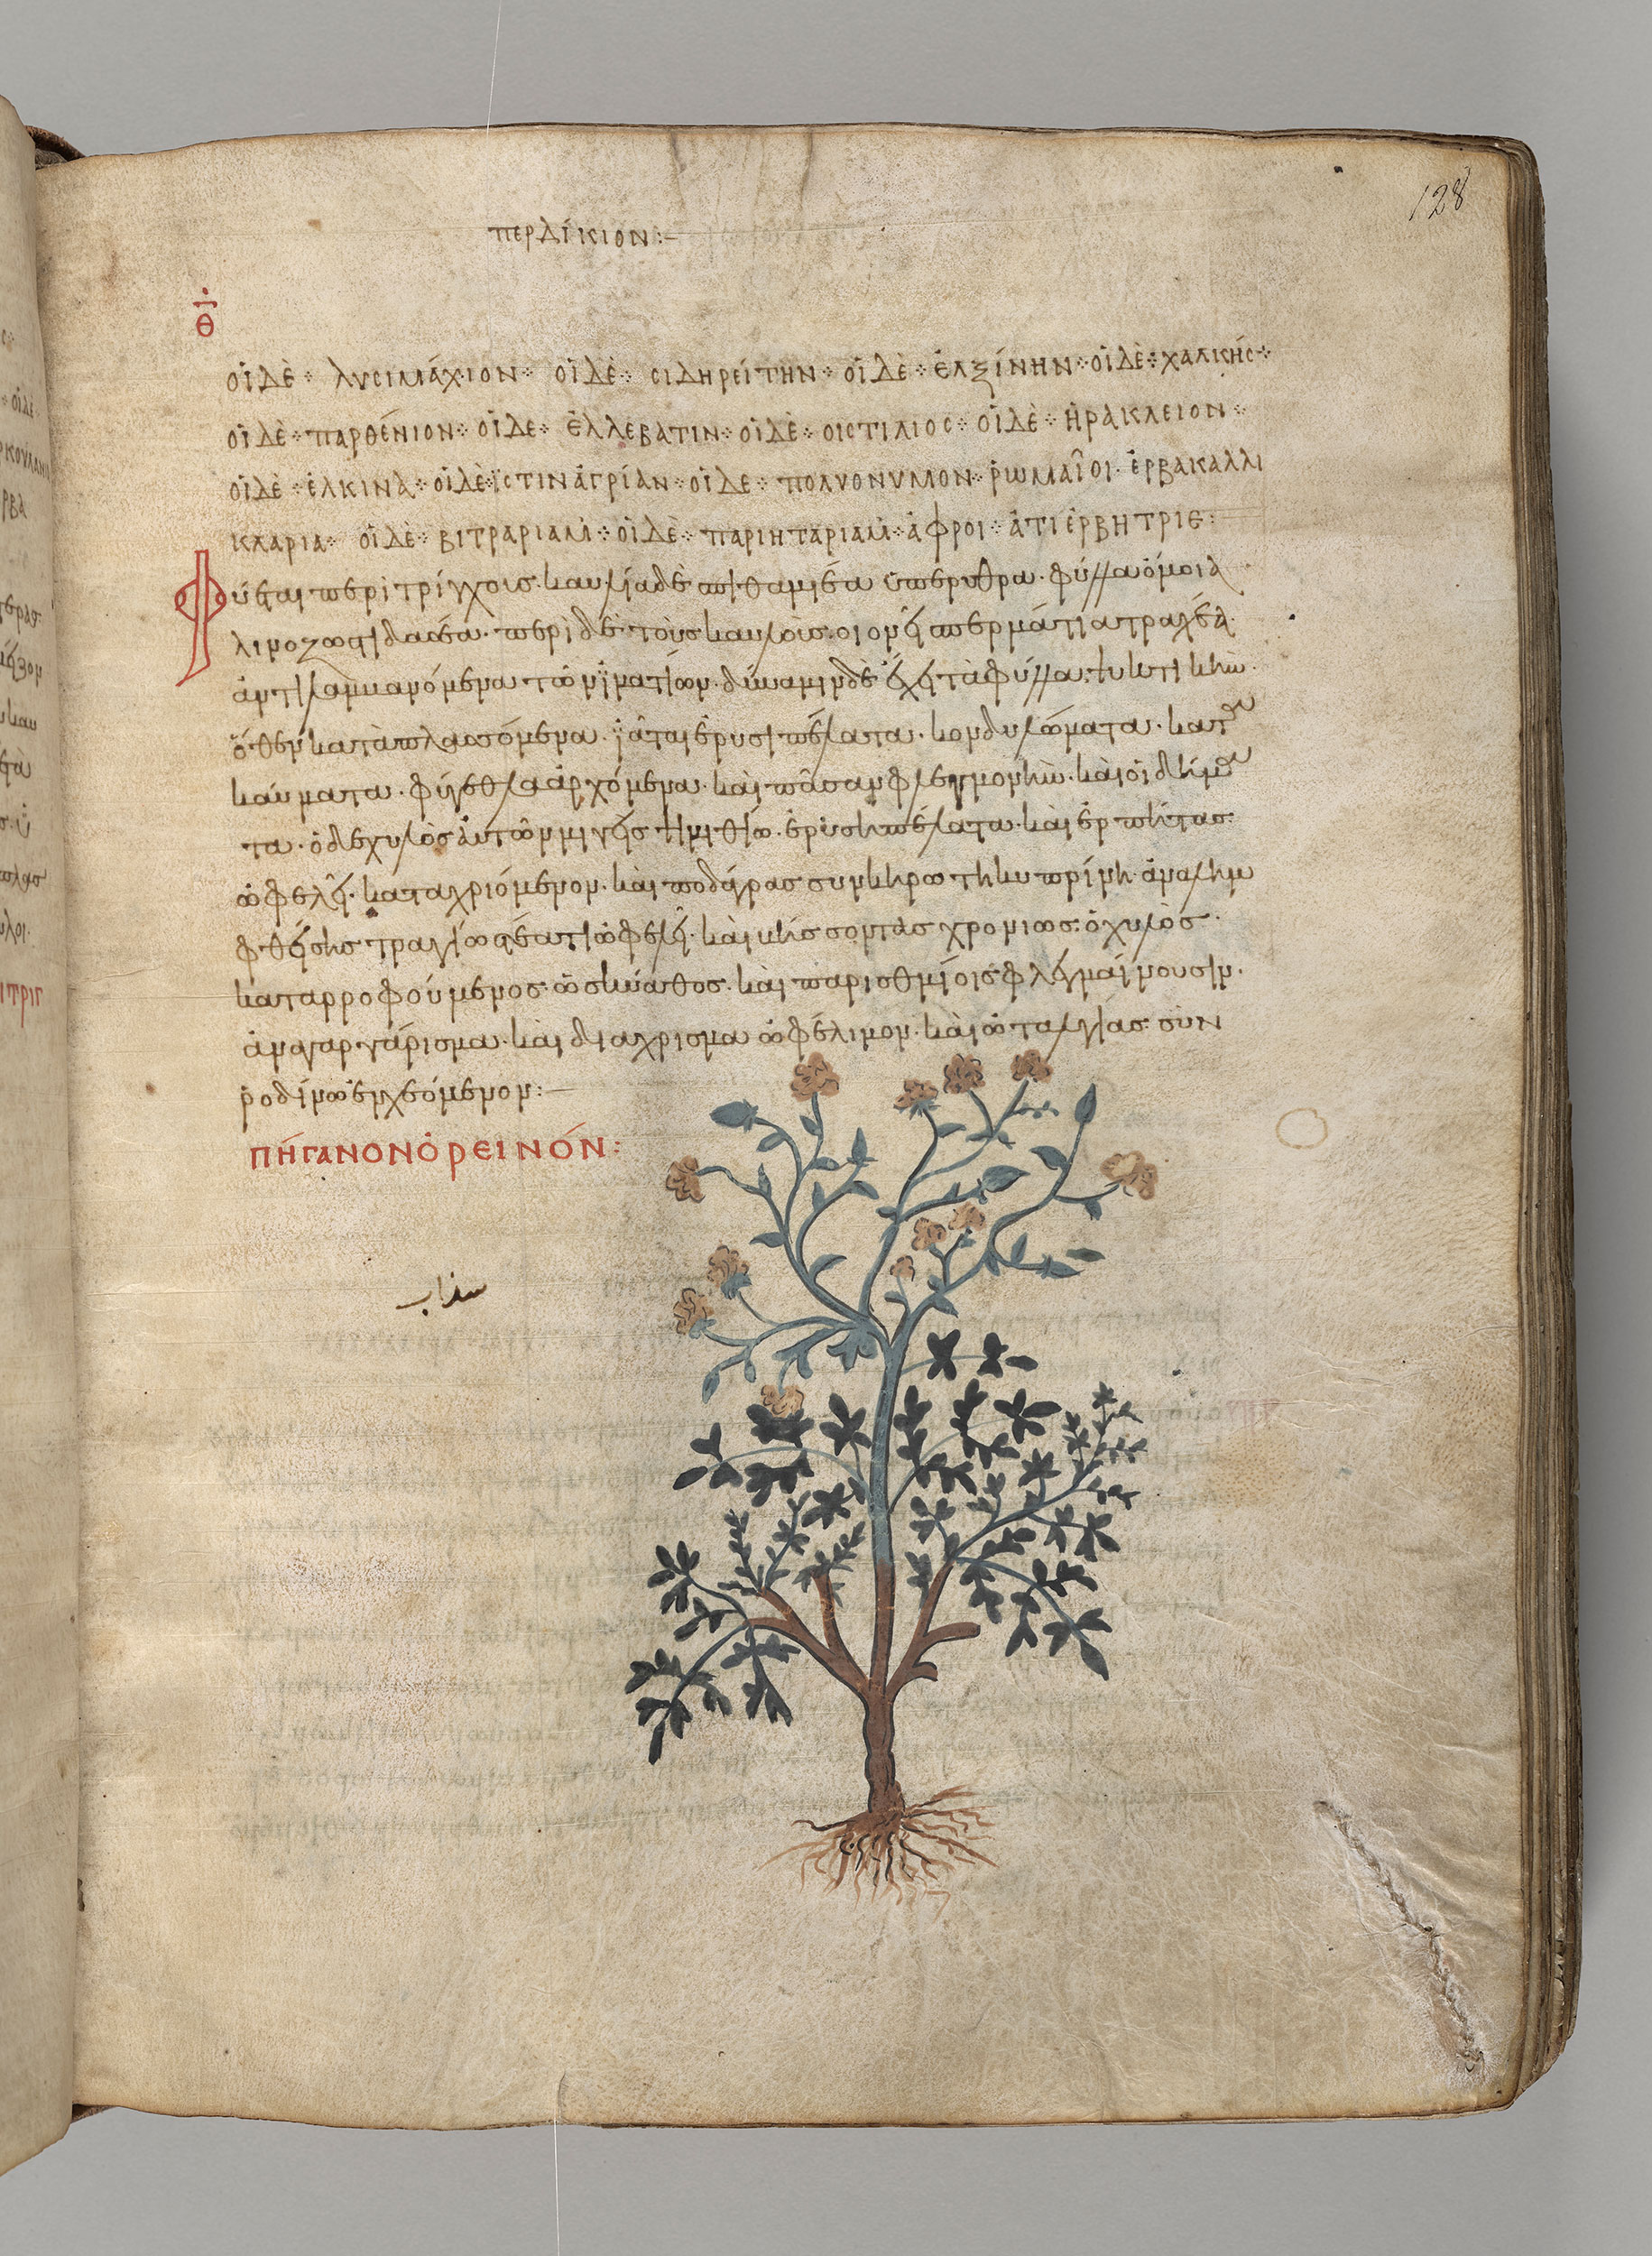 128
περδίκιον:–
θ
οἱ δὲ λυσιμάχιον οἱ δὲ σιδηρείτην οἱ δὲ ἑλξίνην οἱ δὲ χαλκής
οἱ δὲ παρθένιον οἱ δε ἑλλεβατιν οἱ δὲ οιστιλιος οἱ δὲ ἡρακλειον
οἱ δὲ ἑλκινα οἱ δὲ ϊστιν ἀγρίαν οἱ δε πολυονυμον ῥωμαῖοι ἑρβακαλλι
κλαρια οἱ δὲ βιτραριαμ οἱ δὲ παριηταριαμ ἀφροι ἀτιέρβητριε:
Φύεται περὶ τρίγχοις· καυλία δὲ σπιθαμιέα ὑπερυθρα· φύλλα ὅμοια
λινοζωστι δασέα· περὶ δὲ τοὺς καυλοὺς οιονεὶ σπερμάτια τραχέα
ἀντιλαμβανόμενα τῶν ϊματίων· δύναμιν δὲ ἔχει τὰ φύλλα ψυκτικὴν·
ὅθεν καταπλασσόμενα· ϊᾶται ἐρυσιπέλατα· κονδυλώματα· κατα
καύματα· φύγεθλα ἀρχόμενα· καὶ πᾶσαν φλεγμονὴν· καὶ οἰδήμα
τα· ὁ δε χυλὸς ἀυτῶν μιγεὶς ψιμιθίω· ἐρυσιπέλατα· καὶ ἑρπητας
ὠφελεῖ· καταχριόμενον· καὶ ποδάγρας συν κηρωτη κυπρίνη ἀναλημ
φθεὶς ἢ τραγίω στέατι ὠφελεῖ· καὶ βήσσοντας χρονιως ὁ χυλὸς·
καταρροφούμενος ὡς κύαθος· καὶ παρισθμίοις φλεγμαίνουσιν·
ἀναγαργάρισμα· καὶ διαχρισμα ὠφέλιμον· καὶ ὠταλγίας σὺν
ῥοδίνω ἐνχεόμενον:–
ΠΗΓΑΝΟΝ ὈΡΕΙΝΌΝ:
سذاب